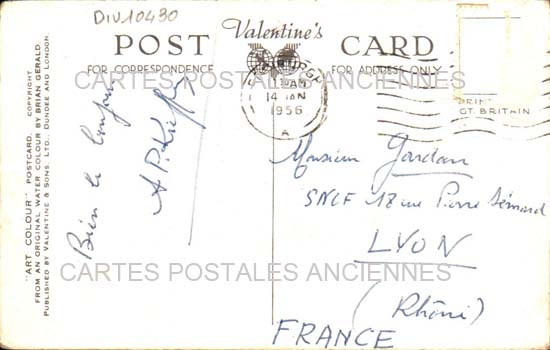 DIV10430
Valentine's
POST CARD
FOR CORRESPONDENCE
FOR ADDRESS ONLY
CARTES POSTALES ANCIENNES
EDINBURGH
14 JAN
1956
A
GT. BRITAIN
"ART COLOUR" POSTCARD. COPYRIGHT
FROM AN ORIGINAL WATER COLOUR BY BRIAN GERALD
PUBLISHED BY VALENTINE & SONS, LTD., DUNDEE AND LONDON.
Bien le bonjour
Monsieur Jordan
SNCF 18 rue Pierre Sémard
LYON
(Rhône)
FRANCE
CARTES POSTALES ANCIENNES